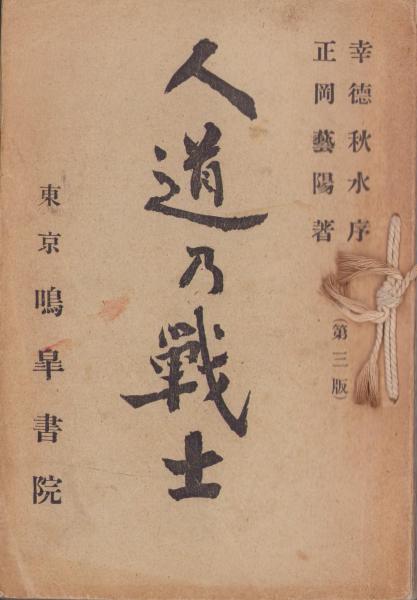 幸德秋水序
正岡藝陽著
(第三版)
人道乃戰士
東京鳴皐書院